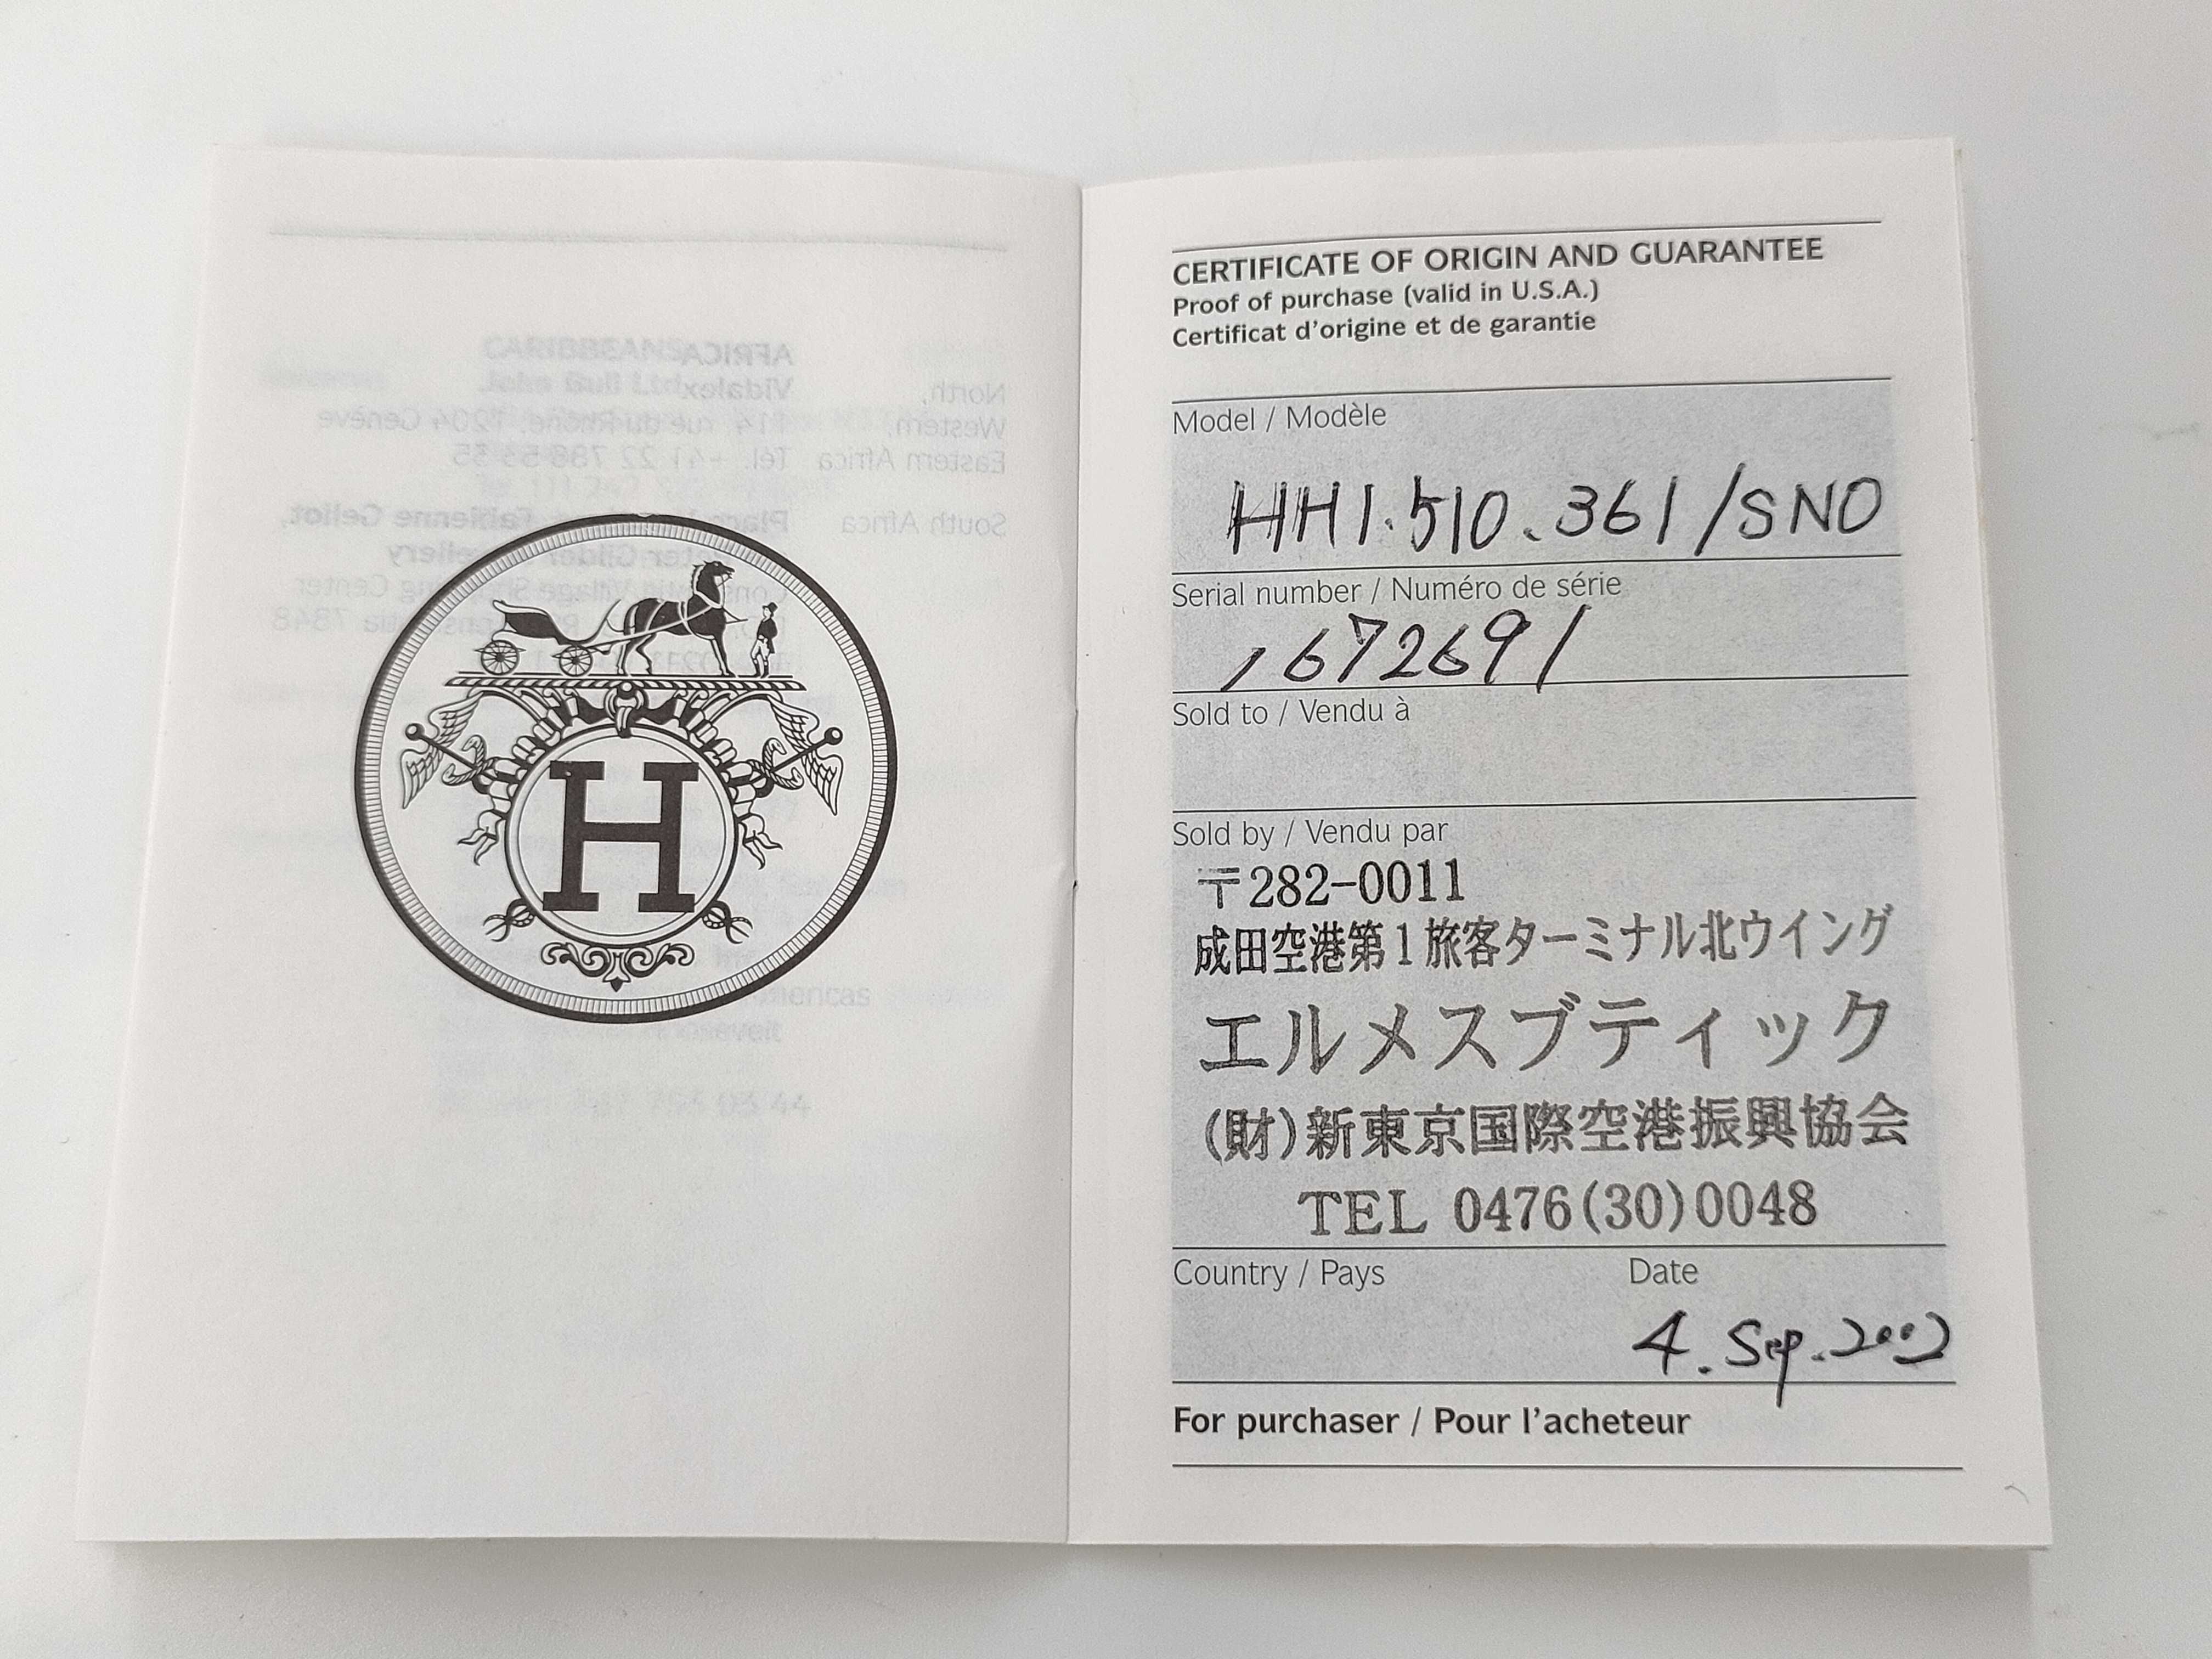 H
CERTIFICATE OF ORIGIN AND GUARANTEE
Proof of purchase (valid in U.S.A.)
Certificat d'origine et de garantie
Model / Modèle
HH1.510.361/SNO
Serial number / Numéro de série
1672691
Sold to / Vendu à
Sold by / Vendu par
〒282-0011
成田空港第1旅客ターミナル北ウイング
エルメスブティック
(財)新東京国際空港振興協会
TEL 0476(30)0048
Country / Pays Date
4. Sep. 2002
For purchaser / Pour l'acheteur